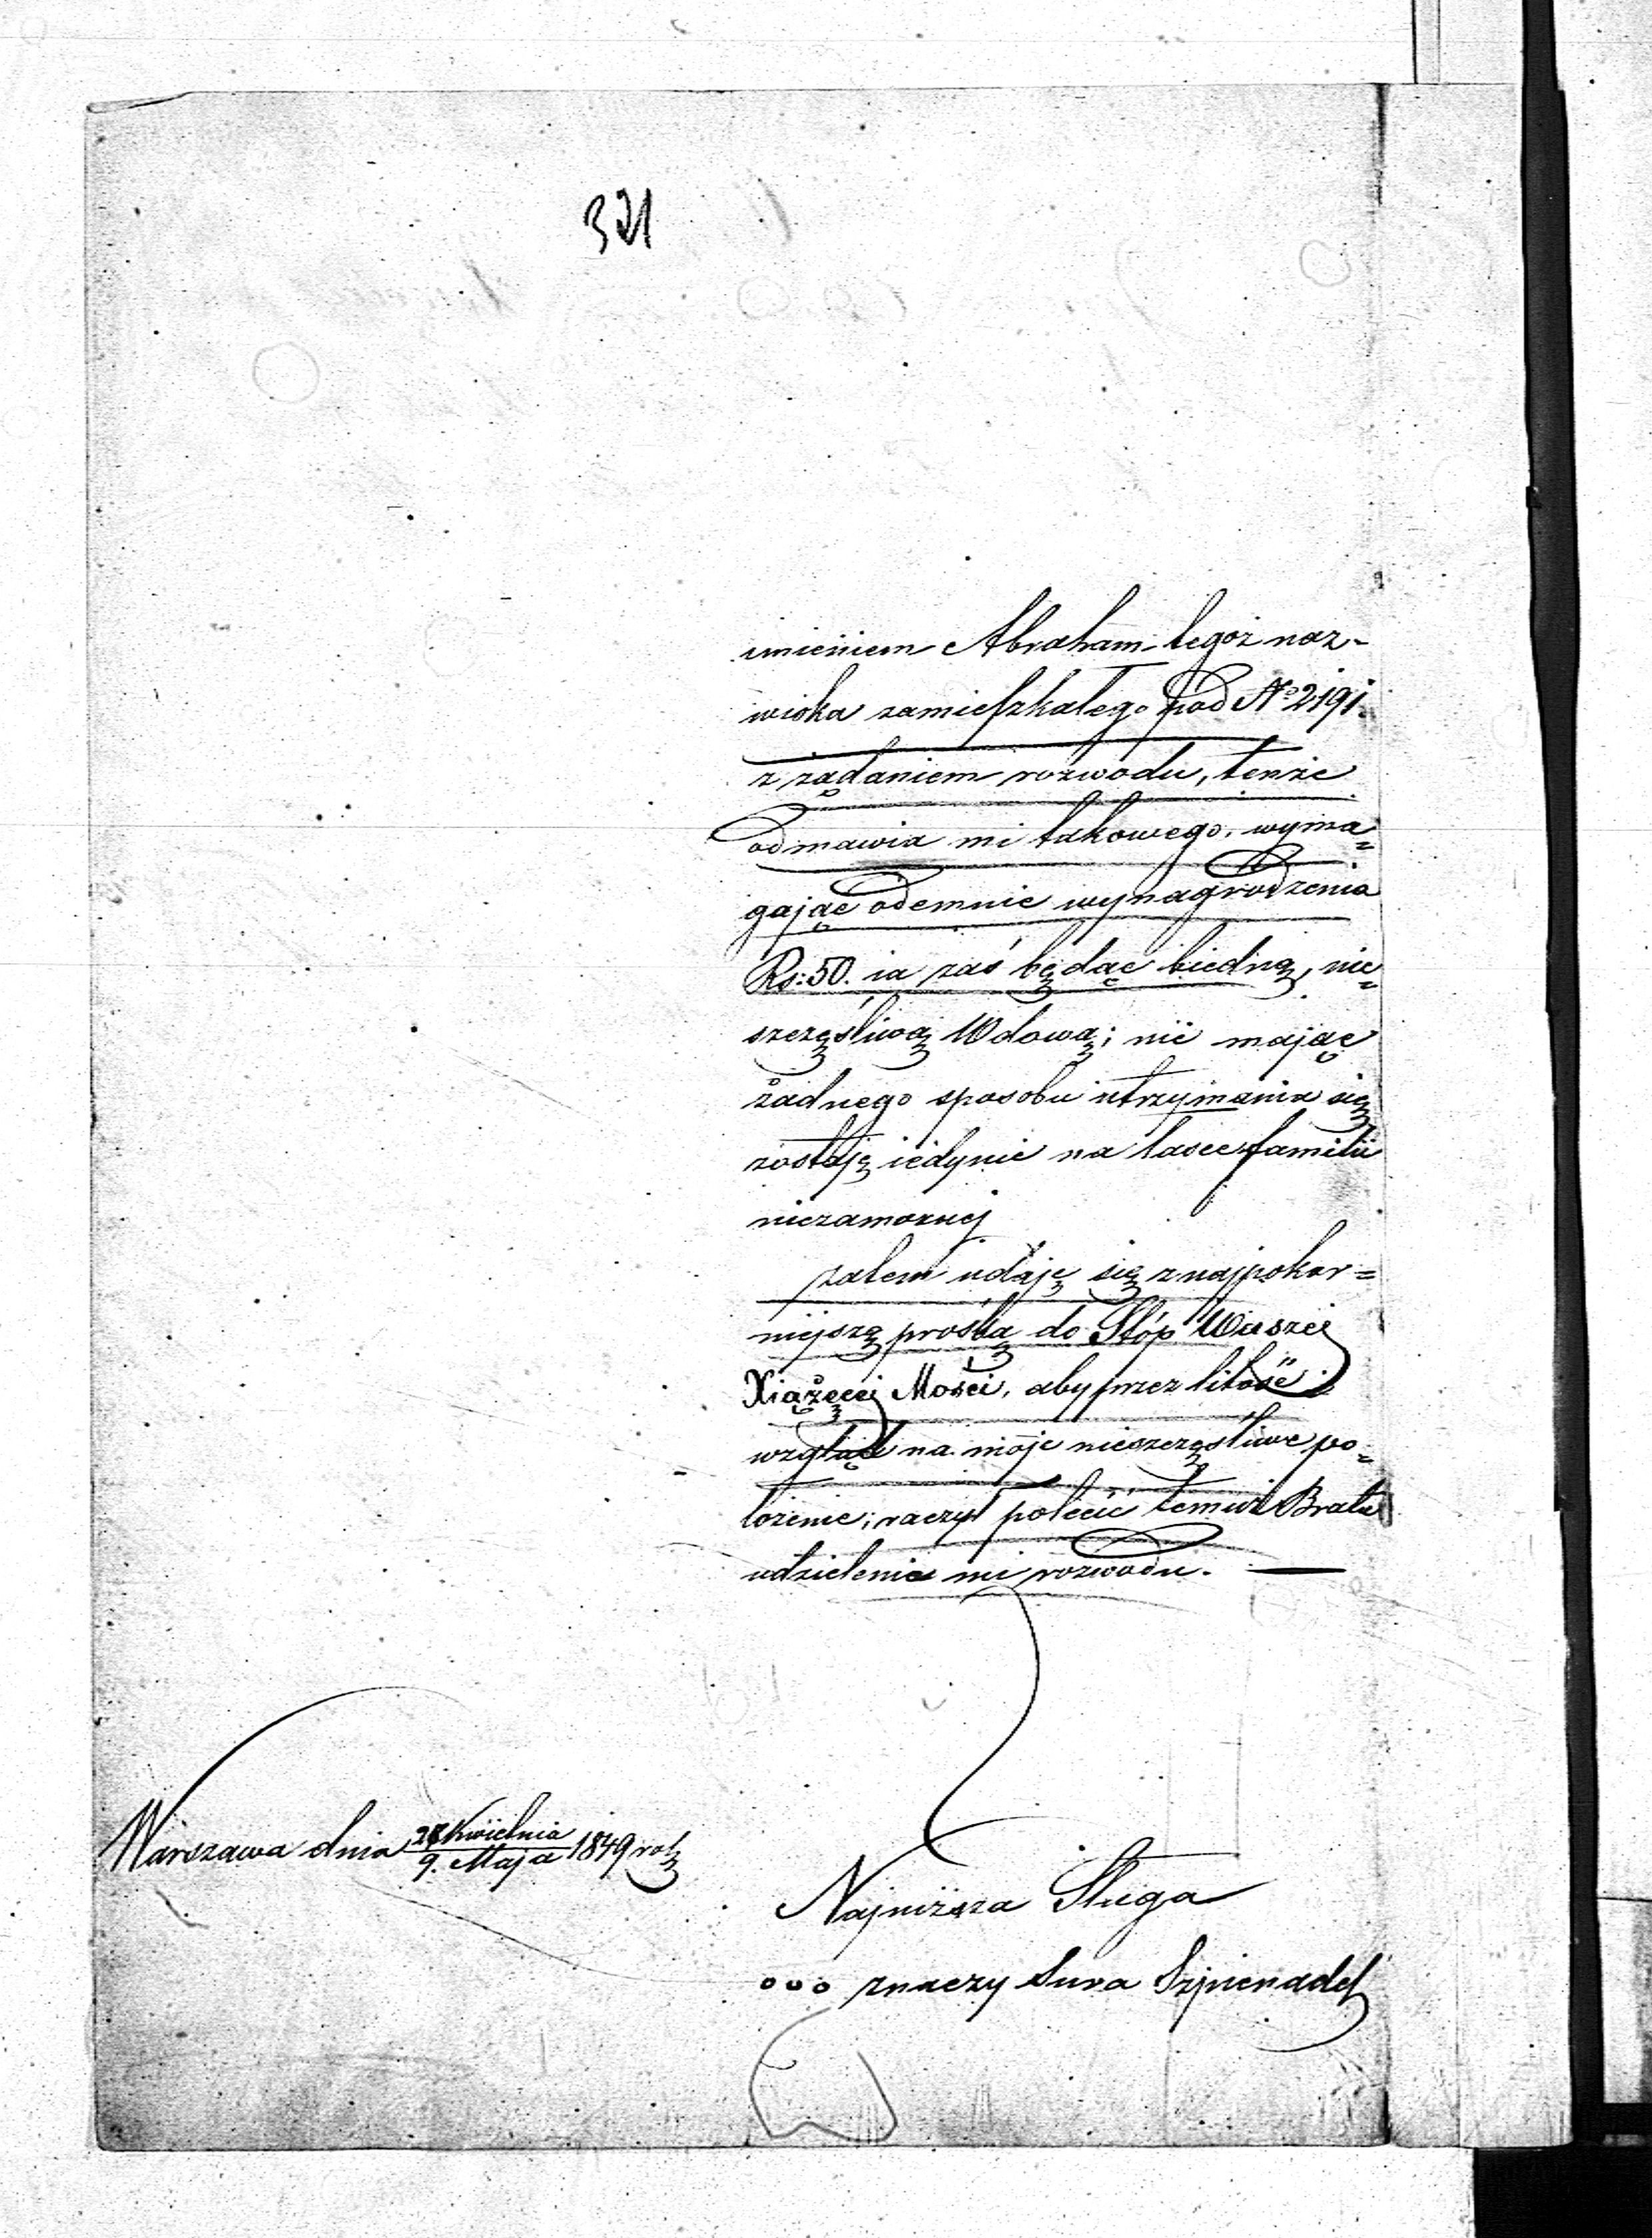 321
imieniem Abraham tegoż naz-
wiska zamieszkałego pod No 2191.
z żądaniem rozwodu, tenże
odmawia mi takowego, wyma=
gając odemnie wynagrodzenia
Rs: 50. ia zaś będąc biedną, nie=
szczęśliwą Wdową; nie mając
żadnego sposobu utrzymania się
zostaję iedynie na łasce familii
niezamożnej
zatem udaję się z najpokor=
niejszą prośbą do Stóp Waszej
Xiążęcej Mości, aby przez litość i
wzgląd na moje nieszczęśliwe po=
łożenie; raczył polecić temuż Bratu
udzielenie mi rozwodu. —
Warszawa dnia 27 Kwietnia / 9. Maja 1849 rok
Najniższa Sługa
ooo znaczy Sura Szpienadel